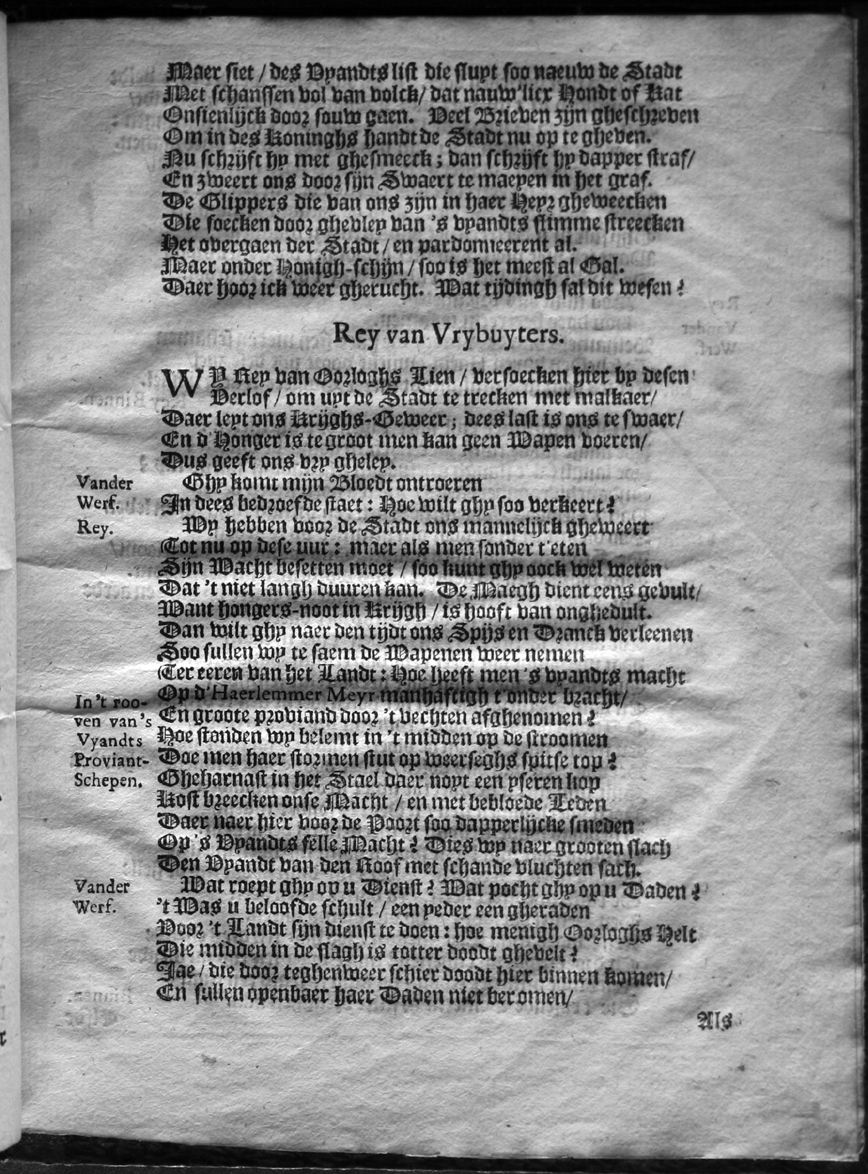 Maer siet / des Vyandts list die sluyt soo naeuw de Stadt
Met schanssen vol van volck / dat nauw'licx Hondt of Kat
Onsienlijck door souw gaen. Veel Brieven zijn gheschreven
Om in des Koninghs handt de Stadt nu op te gheven.
Nu schrijft hy met ghesmeeck ; dan schrijft hy dapper straf /
En zweert ons door sijn Swaert te maeyen in het graf.
De Glippers die van ons zijn in haer Heyr gheweecken
Die soecken door ghevley van 's vyandts slimme streecken
Het overgaen der Stadt / en pardonneerent al.
Maer onder Honigh-schijn / soo is het meest al Gal.
Daer hoor ick weer gherucht. Wat tijdingh sal dit wesen ?
Rey van Vrybuyters.
WY Rey van Oorloghs Lien / versoecken hier by desen
Verlof / om uyt de Stadt te trecken met malkaer /
Daer leyt ons Krijghs-Geweer ; dees last is ons te swaer /
En d'Honger is te groot men kan geen Wapen voeren /
Dus geeft ons vry gheley.
Vander Werf. Ghy komt mijn Bloedt ontroeren
In dees bedroefde staet : Hoe wilt ghy soo verkeert ?
Rey. Wy hebben voor de Stadt ons mannelijck gheweert
Tot nu op dese uur : maer als men sonder t'eten
Sijn Wacht besetten moet / soo kunt ghy oock wel weten
Dat 't niet langh duuren kan. De Maegh dient eens gevult /
Want hongers-noot in Krijgh / is hooft van onghedult.
Dan wilt ghy naer den tijdt ons Spijs en Dranck verleenen
Soo sullen wy te saem de Wapenen weer nemen
Ter eeren van het Landt : Hoe heeft men 's vyandts macht
Op d'Haerlemmer Meyr manhaftigh t'onder bracht /
In 't rooven van 's Vyandts Proviant-Schepen.
En groote proviand door 't vechten afghenomen ?
Hoe stonden wy belemt in 't midden op de stroomen
Doe men haer stormen stut op weerseghs spitse top ?
Gheharnast in het Stael daer noyt een yseren kop
Kost breecken onse Macht / en met bebloede Leden
Daer naer hier voor de Poort soo dapperlijcke smeden
Op 's Vyandts felle Macht ? Dies wy naer grooten slach
Den Vyandt van den Roof met schande vluchten sach.
Vander Werf. Wat roept ghy op u Dienst ? Wat pocht ghy op u Daden ?
't Was u beloofde schult / een yeder een gheraden
Voor 't Landt sijn dienst te doen : hoe menigh Oorloghs Helt
Die midden in de slagh is totter doodt ghevelt ?
Jae / die door teghenweer schier doodt hier binnen komen /
En sullen openbaer haer Daden niet beromen /
Als